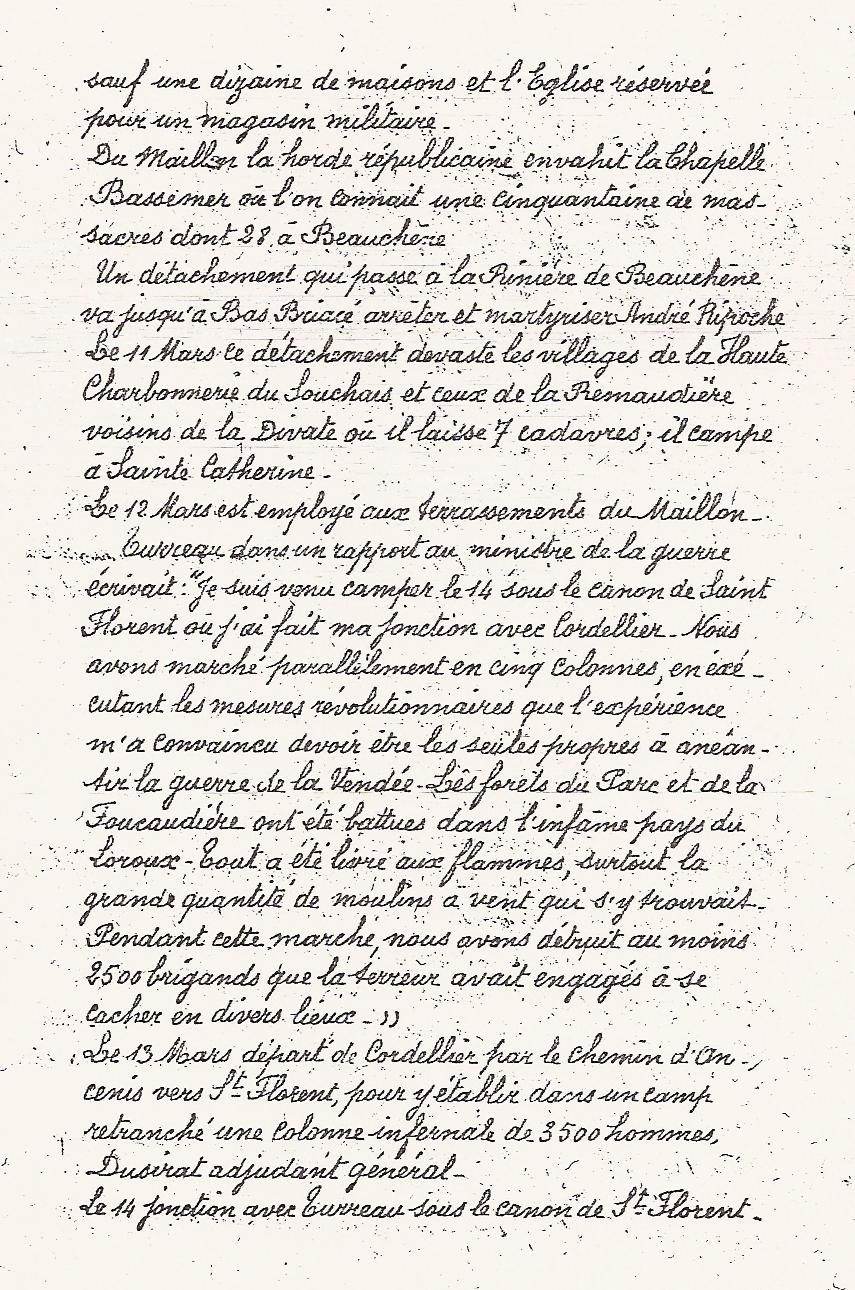 sauf une dizaine de maisons et l'Eglise réservée
pour un magasin militaire.
Du Maillon la horde républicaine envahit la Chapelle
Bassemer où l'on connait une cinquantaine de mas-
sacrés dont 28 à Beauchêne
Un détachement qui passe à la Rinière de Beauchêne
va jusqu'à Bas Briacé arrêter et martyriser André Ripoche
Le 11 Mars ce détachement devaste les villages de la Haute
Charbonnerie du Souchais et ceux de la Remaudière
voisins de la Divate où il laisse 7 cadavres; il campe
à Sainte Catherine.
Le 12 Mars est employé aux terrassements du Maillon.
Turreau dans un rapport au ministre de la guerre
écrivait: "Je suis venu camper le 14 sous le canon de Saint
Florent où j'ai fait ma jonction avec Cordellier. Nous
avons marché parallèlement en cinq colonnes, en éxé-
cutant les mesures révolutionnaires que l'expérience
m'a convaincu devoir être les seules propres à anéan-
tir la guerre de la Vendée. Les forêts du Parc et de la
Foucaudière ont été battues dans l'infâme pays du
Loroux. Tout a été livré aux flammes, surtout la
grande quantité de moulins à vent qui s'y trouvait.
Pendant cette marche, nous avons détruit au moins
2500 brigands que la terreur avait engagés à se
cacher en divers lieux. »
Le 13 Mars départ de Cordellier par le chemin d'An-
cenis vers St Florent, pour y établir dans un camp
retranché une colonne infernale de 3500 hommes,
Dusirat adjudant général.
Le 14 jonction avec Turreau sous le canon de St Florent.